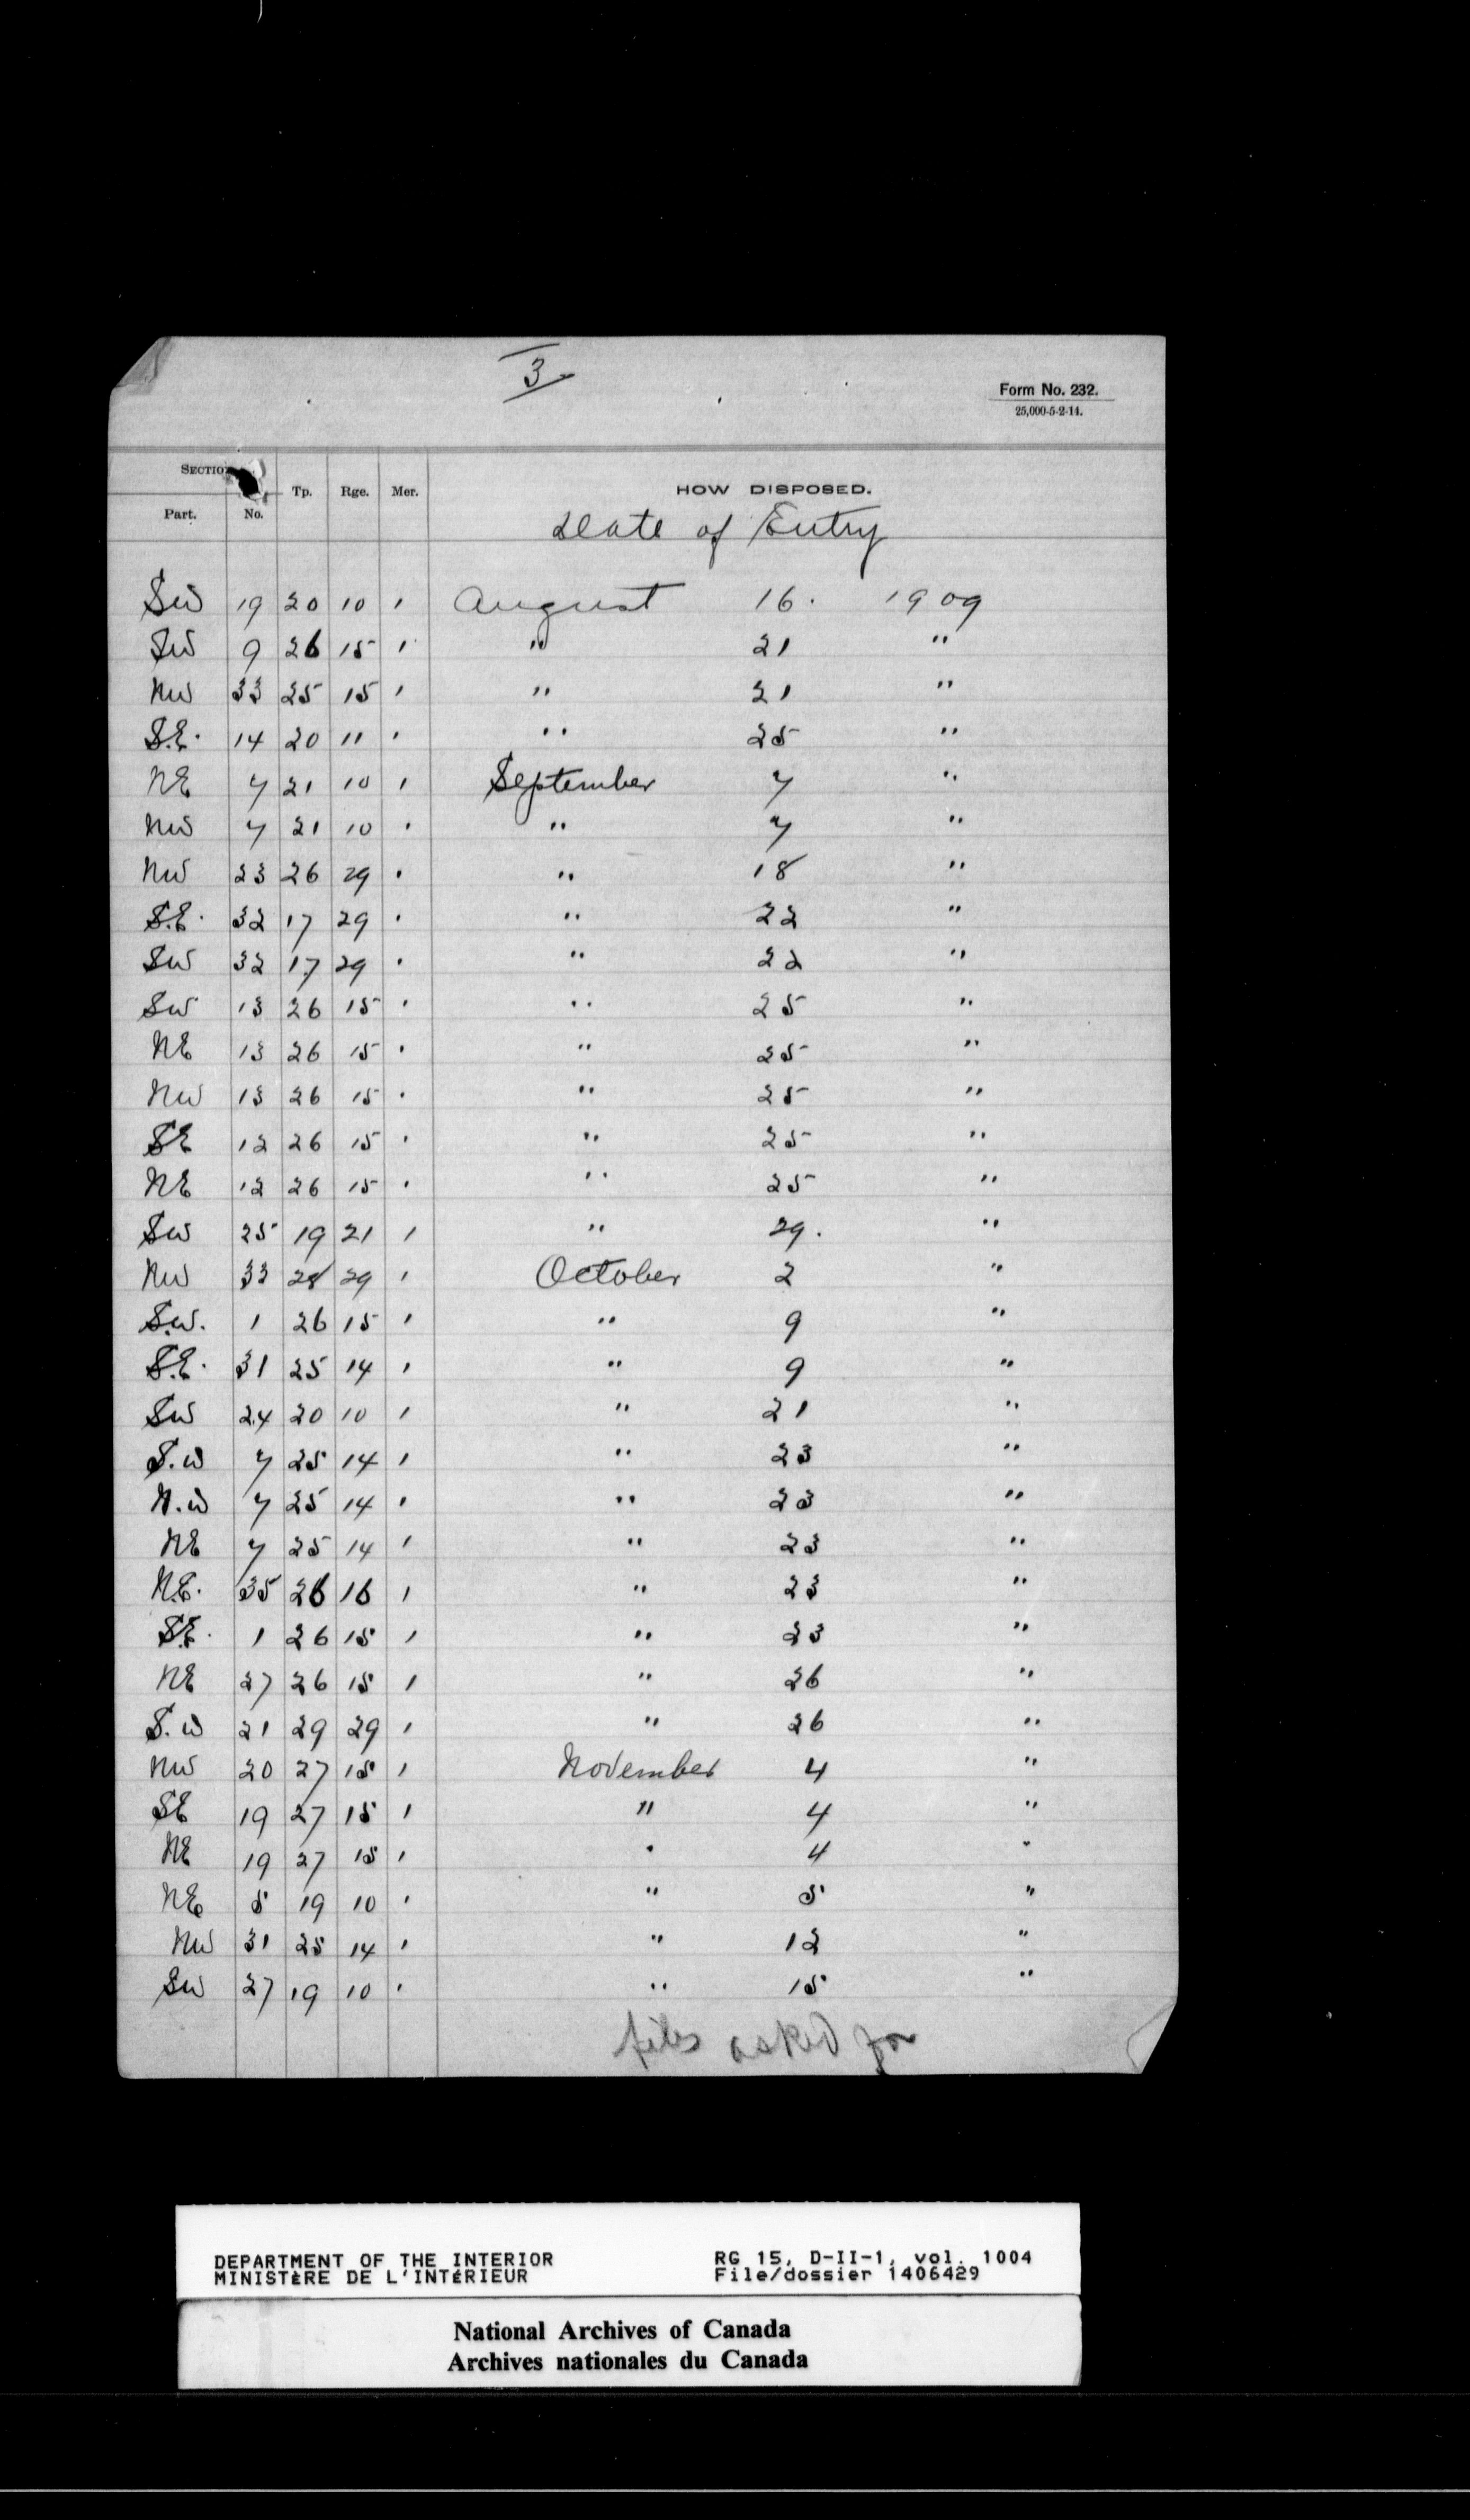 3
Form No. 232.
25,000-5-2-14.
SECTION
Part. No. Tp. Rge. Mer. HOW DISPOSED.
Date of Entry
SW 19 20 10 1 August 16. 1909
SW 9 26 15 1 " 21 "
NW 33 25 15 1 " 21 "
S.E. 14 20 11 1 " 25 "
NE 7 21 10 1 September 7 "
NW 7 21 10 1 " 7 "
NW 23 26 29 1 " 18 "
S.E. 32 17 29 1 " 22 "
SW 32 17 29 1 " 22 "
SW 13 26 15 1 " 25 "
NE 13 26 15 1 " 25 "
NW 13 26 15 1 " 25 "
SE 12 26 15 1 " 25 "
NE 12 26 15 1 " 25 "
SW 25 19 21 1 " 29. "
NW 33 28 29 1 October 2 "
S.W. 1 26 15 1 " 9 "
S.E. 31 25 14 1 " 9 "
SW 24 20 10 1 " 21 "
S.W 7 25 14 1 " 23 "
N.W 7 25 14 1 " 23 "
NE 7 25 14 1 " 23 "
N.E. 35 26 16 1 " 23 "
S.E. 1 26 15 1 " 23 "
NE 27 26 15 1 " 26 "
S.W 21 29 29 1 " 26 "
NW 20 27 15 1 November 4 "
SE 19 27 15 1 " 4 "
NE 19 27 15 1 " 4 "
NE 5 19 10 1 " 5 "
NW 31 25 14 1 " 12 "
SW 27 19 10 1 " 15 "
files asked for
DEPARTMENT OF THE INTERIOR RG 15, D-II-1, vol. 1004
MINISTÈRE DE L'INTÉRIEUR File/dossier 1406429
National Archives of Canada
Archives nationales du Canada